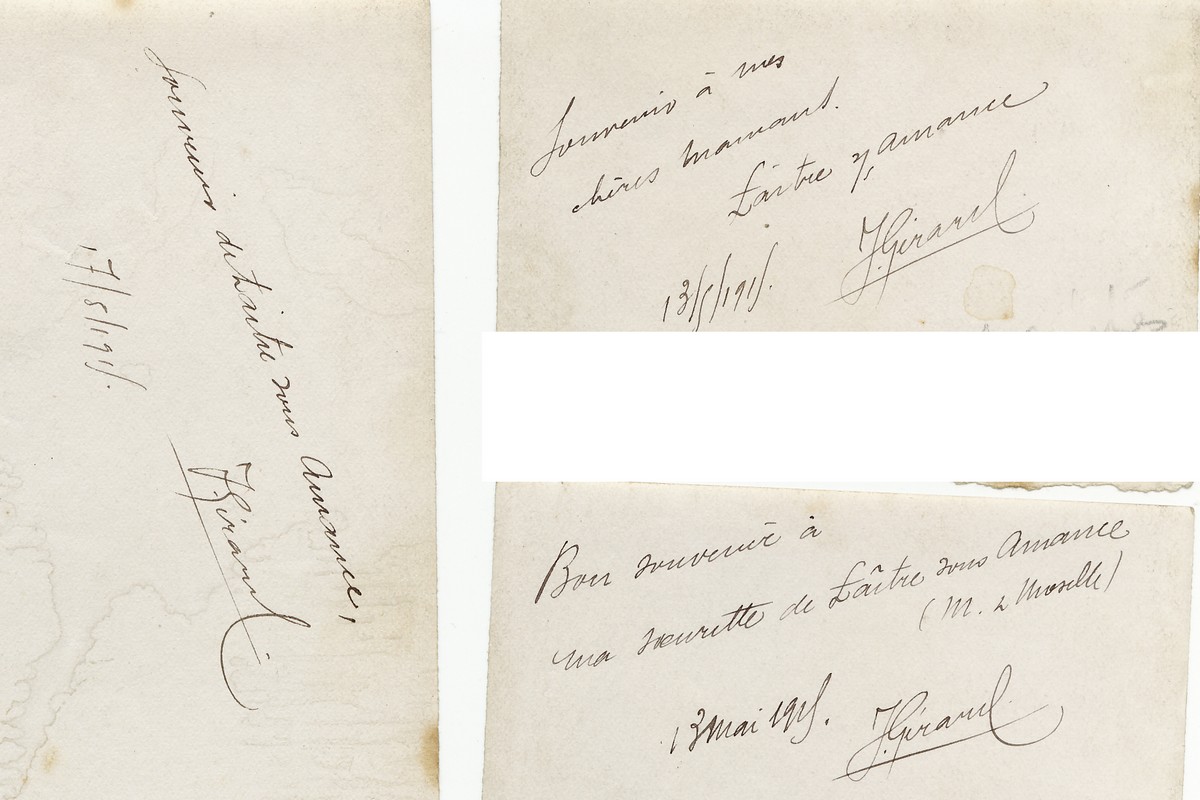 Souvenir de Laitre sous Amance,
17/5/1915.
J. Girard
Souvenir à mes
chères mamans.
Laitre s/ Amance
J. Girard
13/5/1915.
Bon souvenir à
ma sœurette de Laître sous Amance
(M. & Moselle)
13 mai 1915.
J. Girard